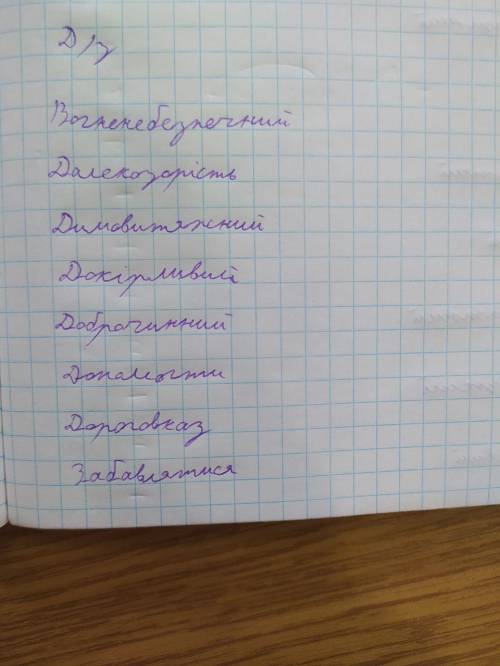 Д/з
Вогненебезпечний
Далекозорість
Димовитяжний
Докірливий
Доброчинний
Допомогти
Дороговказ
Забавлятися